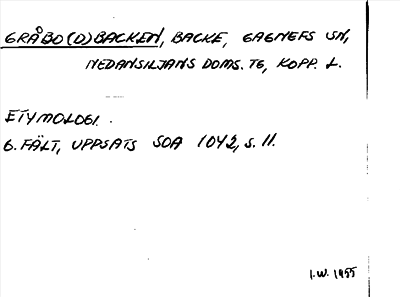 GRÅBO(D)BACKEN, BACKE, GAGNEFS SN,
NEDANSILJANS DOMS. TG, KOPP. L.
ETYMOLOGI.
G. FÄLT, UPPSATS SOA 1042, S. 11.
I.W. 1955